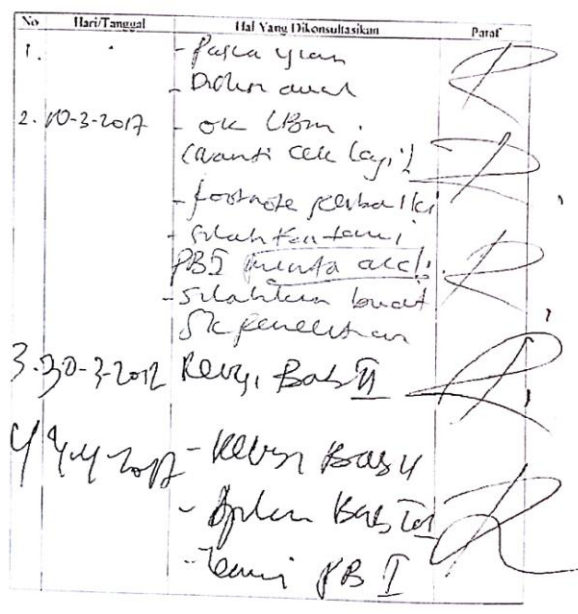 No Hari/Tanggal Hal Yang Dikonsultasikan Paraf
1. - Pasca
-
2. 10-3-2017 - ok LBM.
(nanti cek lagi)
- footnote perbaiki
- silahkan temui
PBI minta acc!.
- silahkan buat
SK penelitian
3. 30-3-2017 Revisi Bab II
4 4-4-2017 - Revisi Bab II
- Bab III
- temui PB I